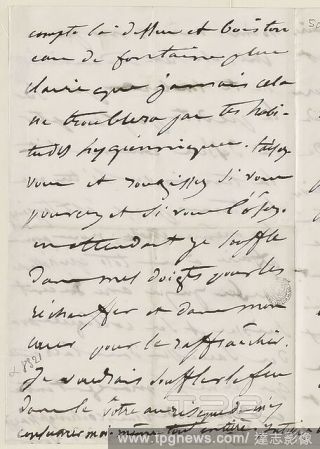 compte là dessus et bois ton
eau de fontaine plus
claire que jamais cela
ne troublera pas tes habi-
tudes hygiéniques. taisez
vous et rougissez si vous
pouvez et si vous l'osez.
en attendant je souffle
dans mes doigts pour les
réchauffer et dans mon
cœur pour le raffraîchir.
Je voudrais souffler le feu
dans le vôtre au risque de m'y
consumer moi-même tout entière.
8321
www.tpgnews.com
達志影像